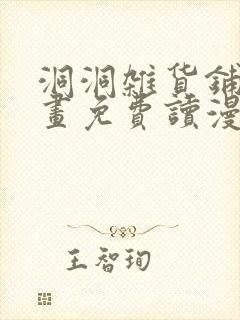 洞洞雜貨鋪
畫免費讀漫
王智珣